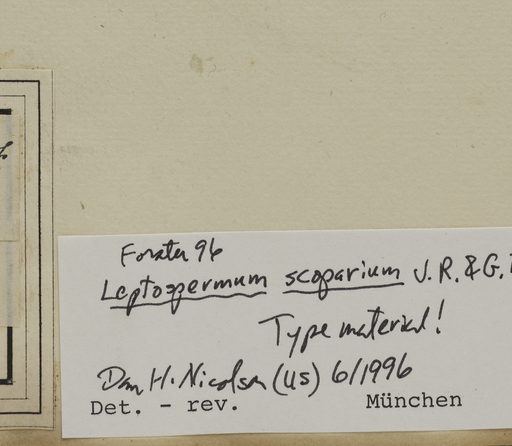 Forster 96
Leptospermum scoparium J.R. & G.
Type material!
Dan H. Nicolson (US) 6/1996
Det. - rev. München